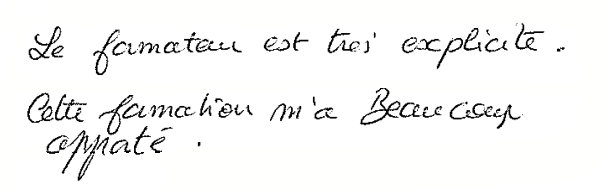 Le formateur est très explicite.
Cette formation m'a Beaucoup
apporté.